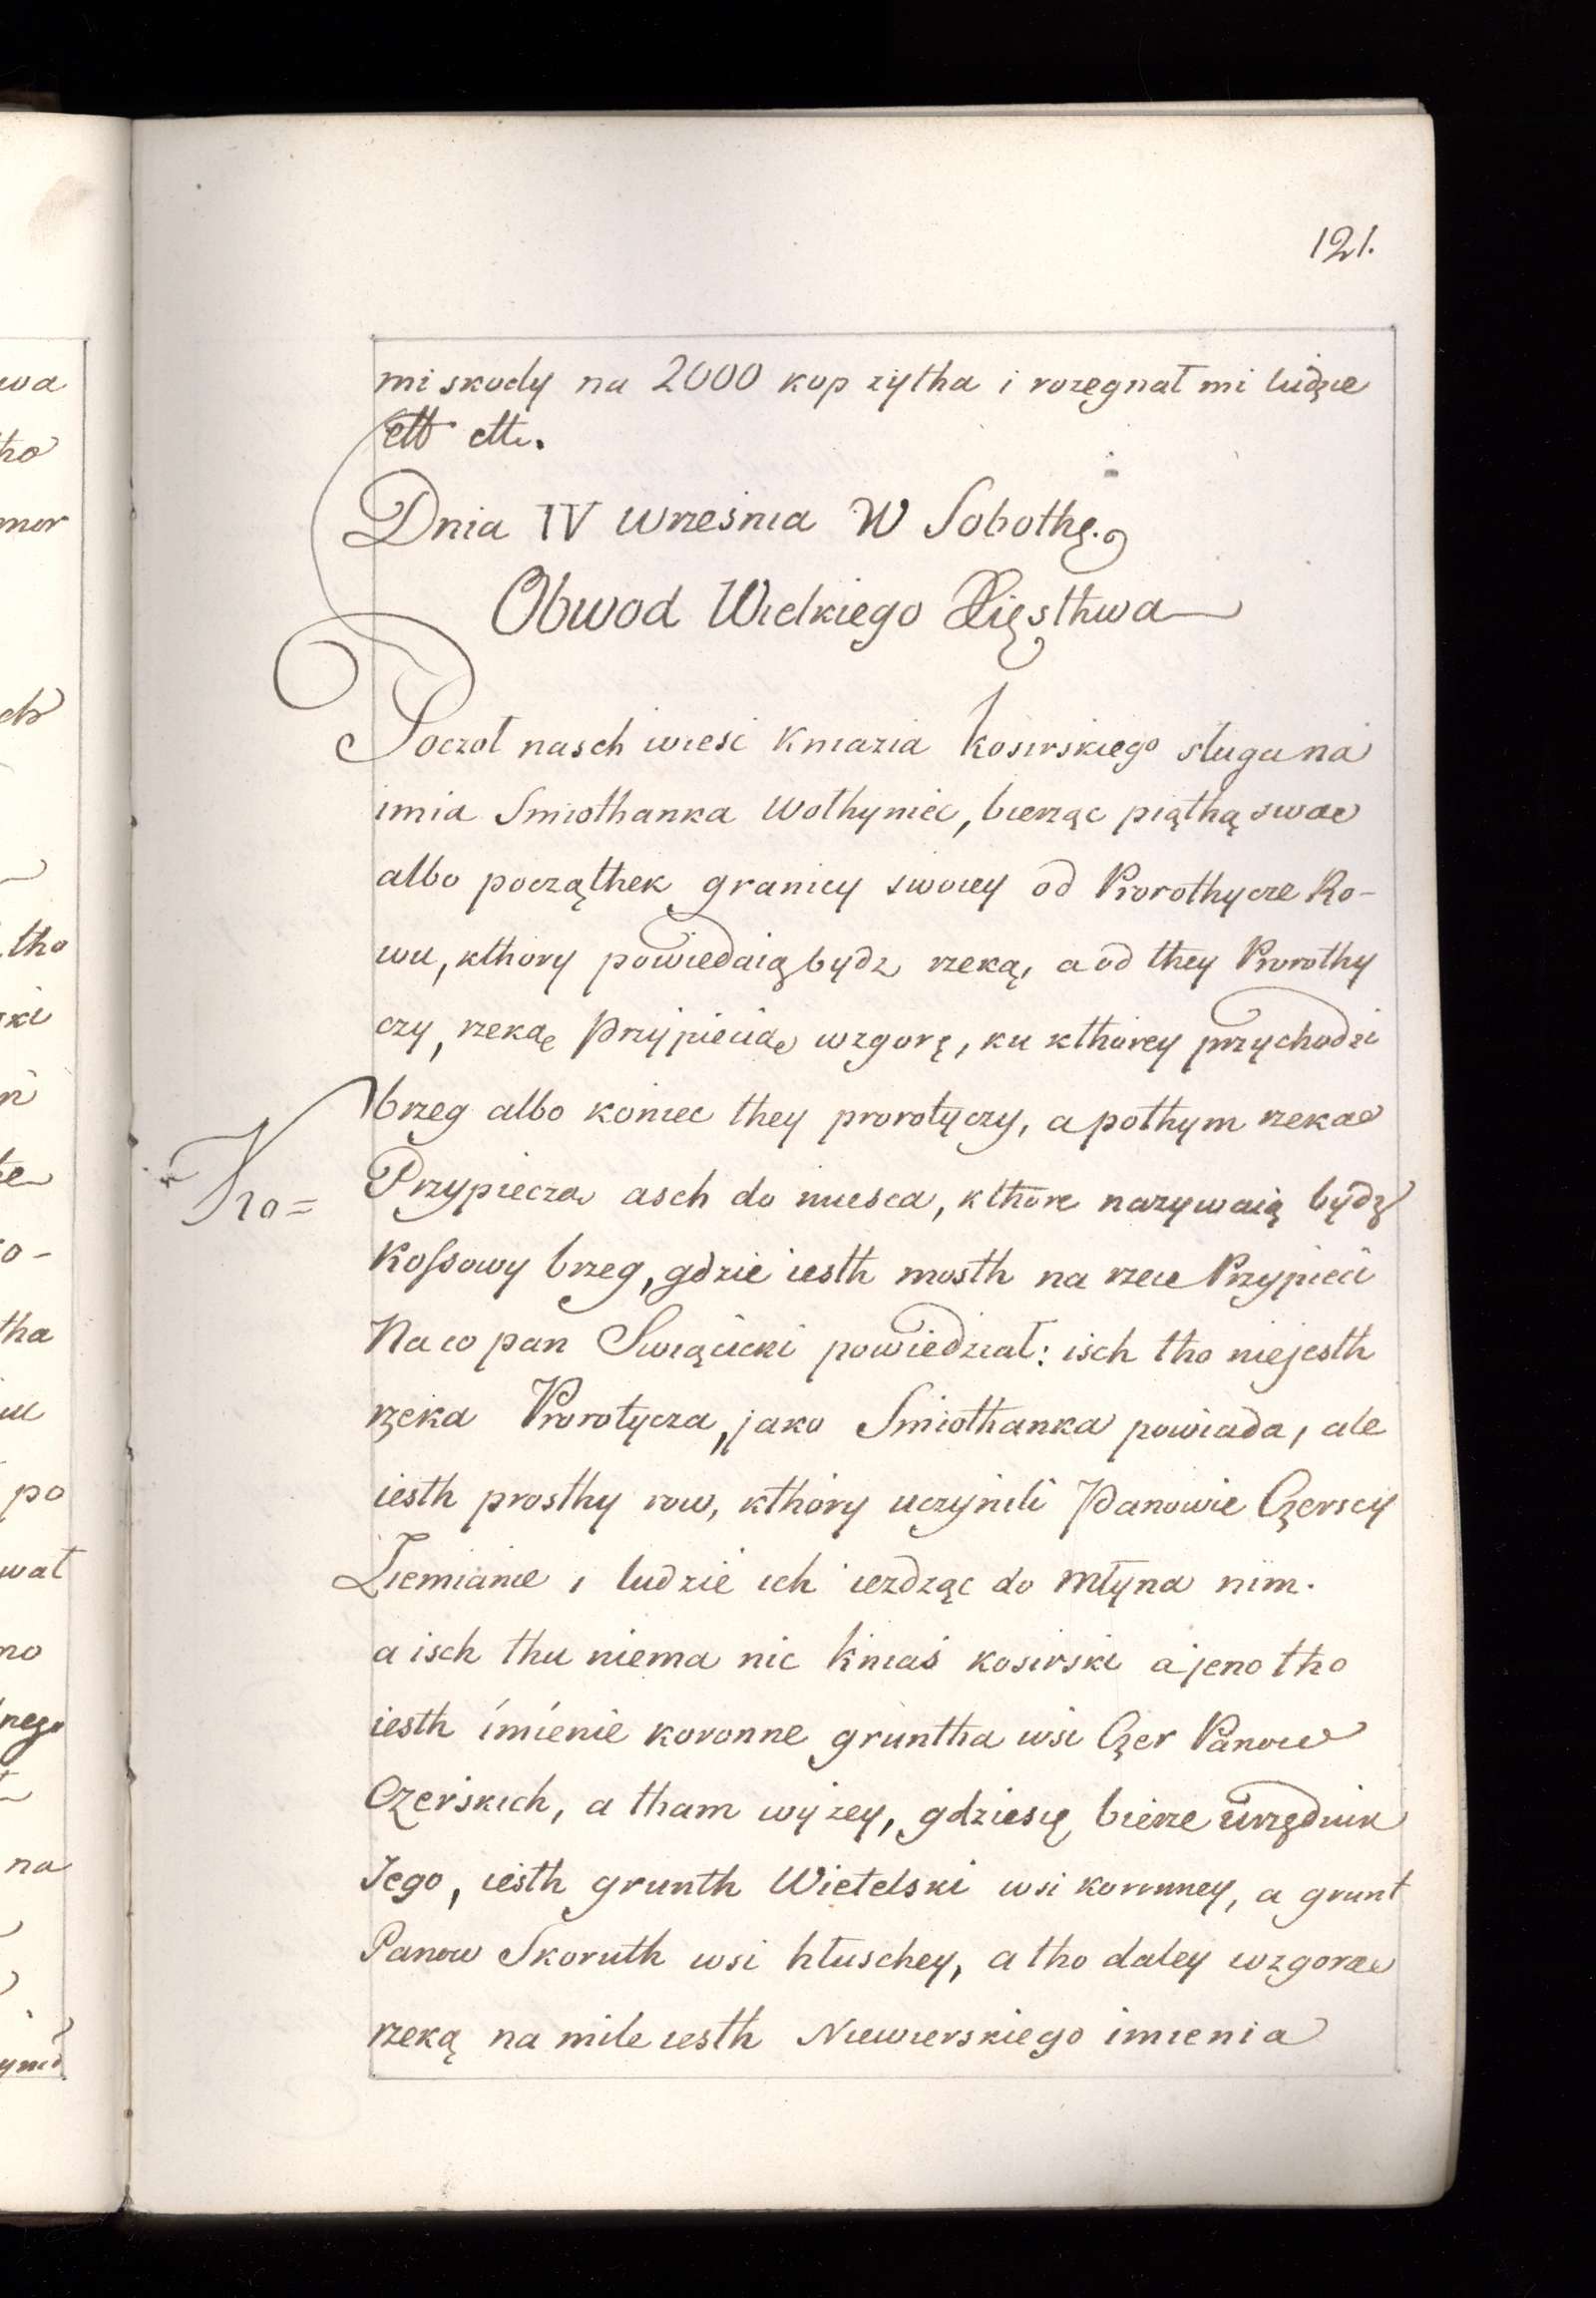 121.
mi skody na 2000 kop zytha i rozegnał mi ludzie
ett ett.
Dnia IV Wrzesnia W Sobothę.
Obwod Wielkiego Xięsthwa
Poczol nasch wiesc Kniazia Kosirskiego sługa na
imia Smiothanka Wołhyniec, bierząc piąthą swae
albo począthek granicy swoiey od Prorothycze Ro-
wu, kthory powiedaią bydz rzeką, a od they Prorothy
czy, rzekaę Przypieciae wzgorę, ku kthorey przychodzi
brzeg albo koniec they prorotyczy, a pothym rzekae
Przypiecza asch do miesca, kthore nazywaią bydz
Ko=
Kossowy brzeg, gdzie iesth mosth na rzece Przypieci
Na co pan Swiącicki powiedział: isch tho niejesth
rzeka Prorotycza, jako Smiothanka powiada, ale
iesth prosthy row, kthory uczynili Panowie Czerscy
Ziemianie i ludzie ich iezdząc do młyna nim.
a isch thu niema nic Kniaś kosirski a jeno tho
iesth imienie koronne gruntha wsi Czer Panow
Czerskich, a tham wyzey, gdziesię bierze urzędnik
Jego, iesth grunth Wietelski wsi koronney, a grunt
Panow Skoruth wsi hłuschey, a tho daley wzgorae
rzeką na mile iesth Niewierskiego imienia